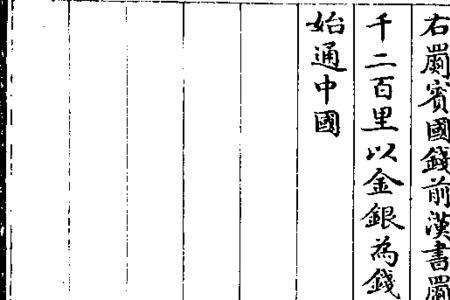 右罽賓國錢前漢書罽
千二百里以金銀為錢
始通中國